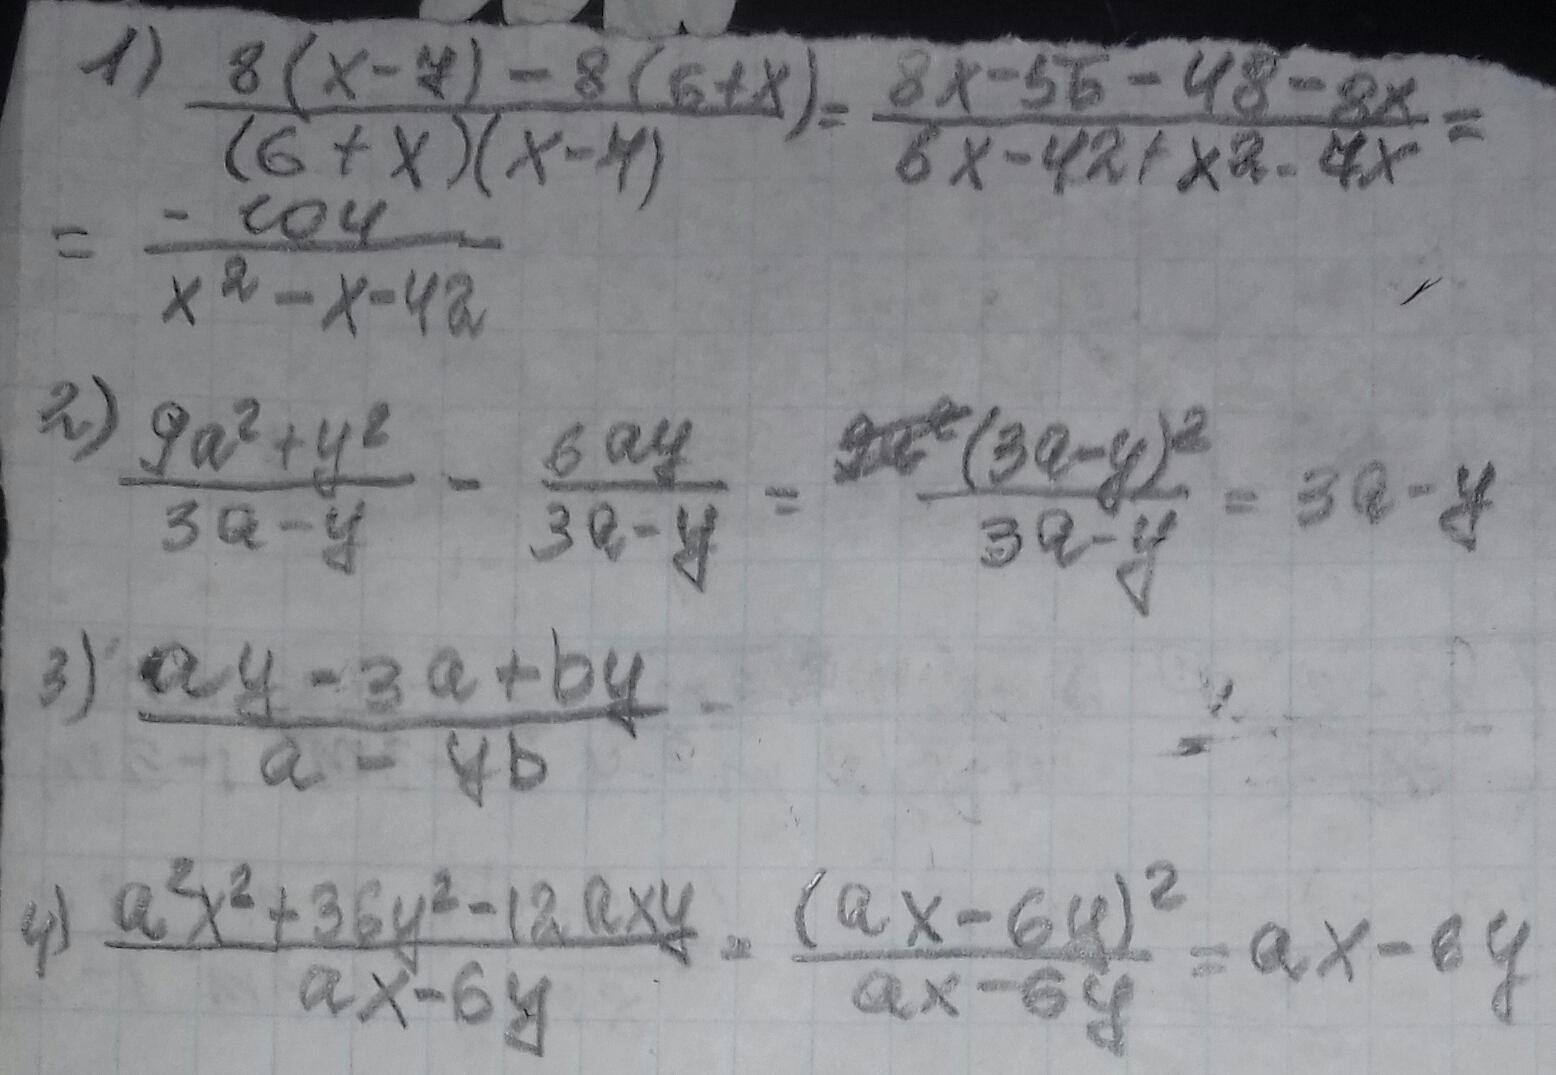 1) (8(x-7)-8(6+x))/((6+x)(x-7)) = (8x-56-48-8x)/(6x-42+x2-7x) =
= (-104)/(x²-x-42)
2) (9a²+y²)/(3a-y) - (6ay)/(3a-y) = (3a-y)²/(3a-y) = 3a-y
3) (ay-3a+by)/(a-yb)
4) (a²x²+36y²-12axy)/(ax-6y) = (ax-6y)²/(ax-6y) = ax-6y